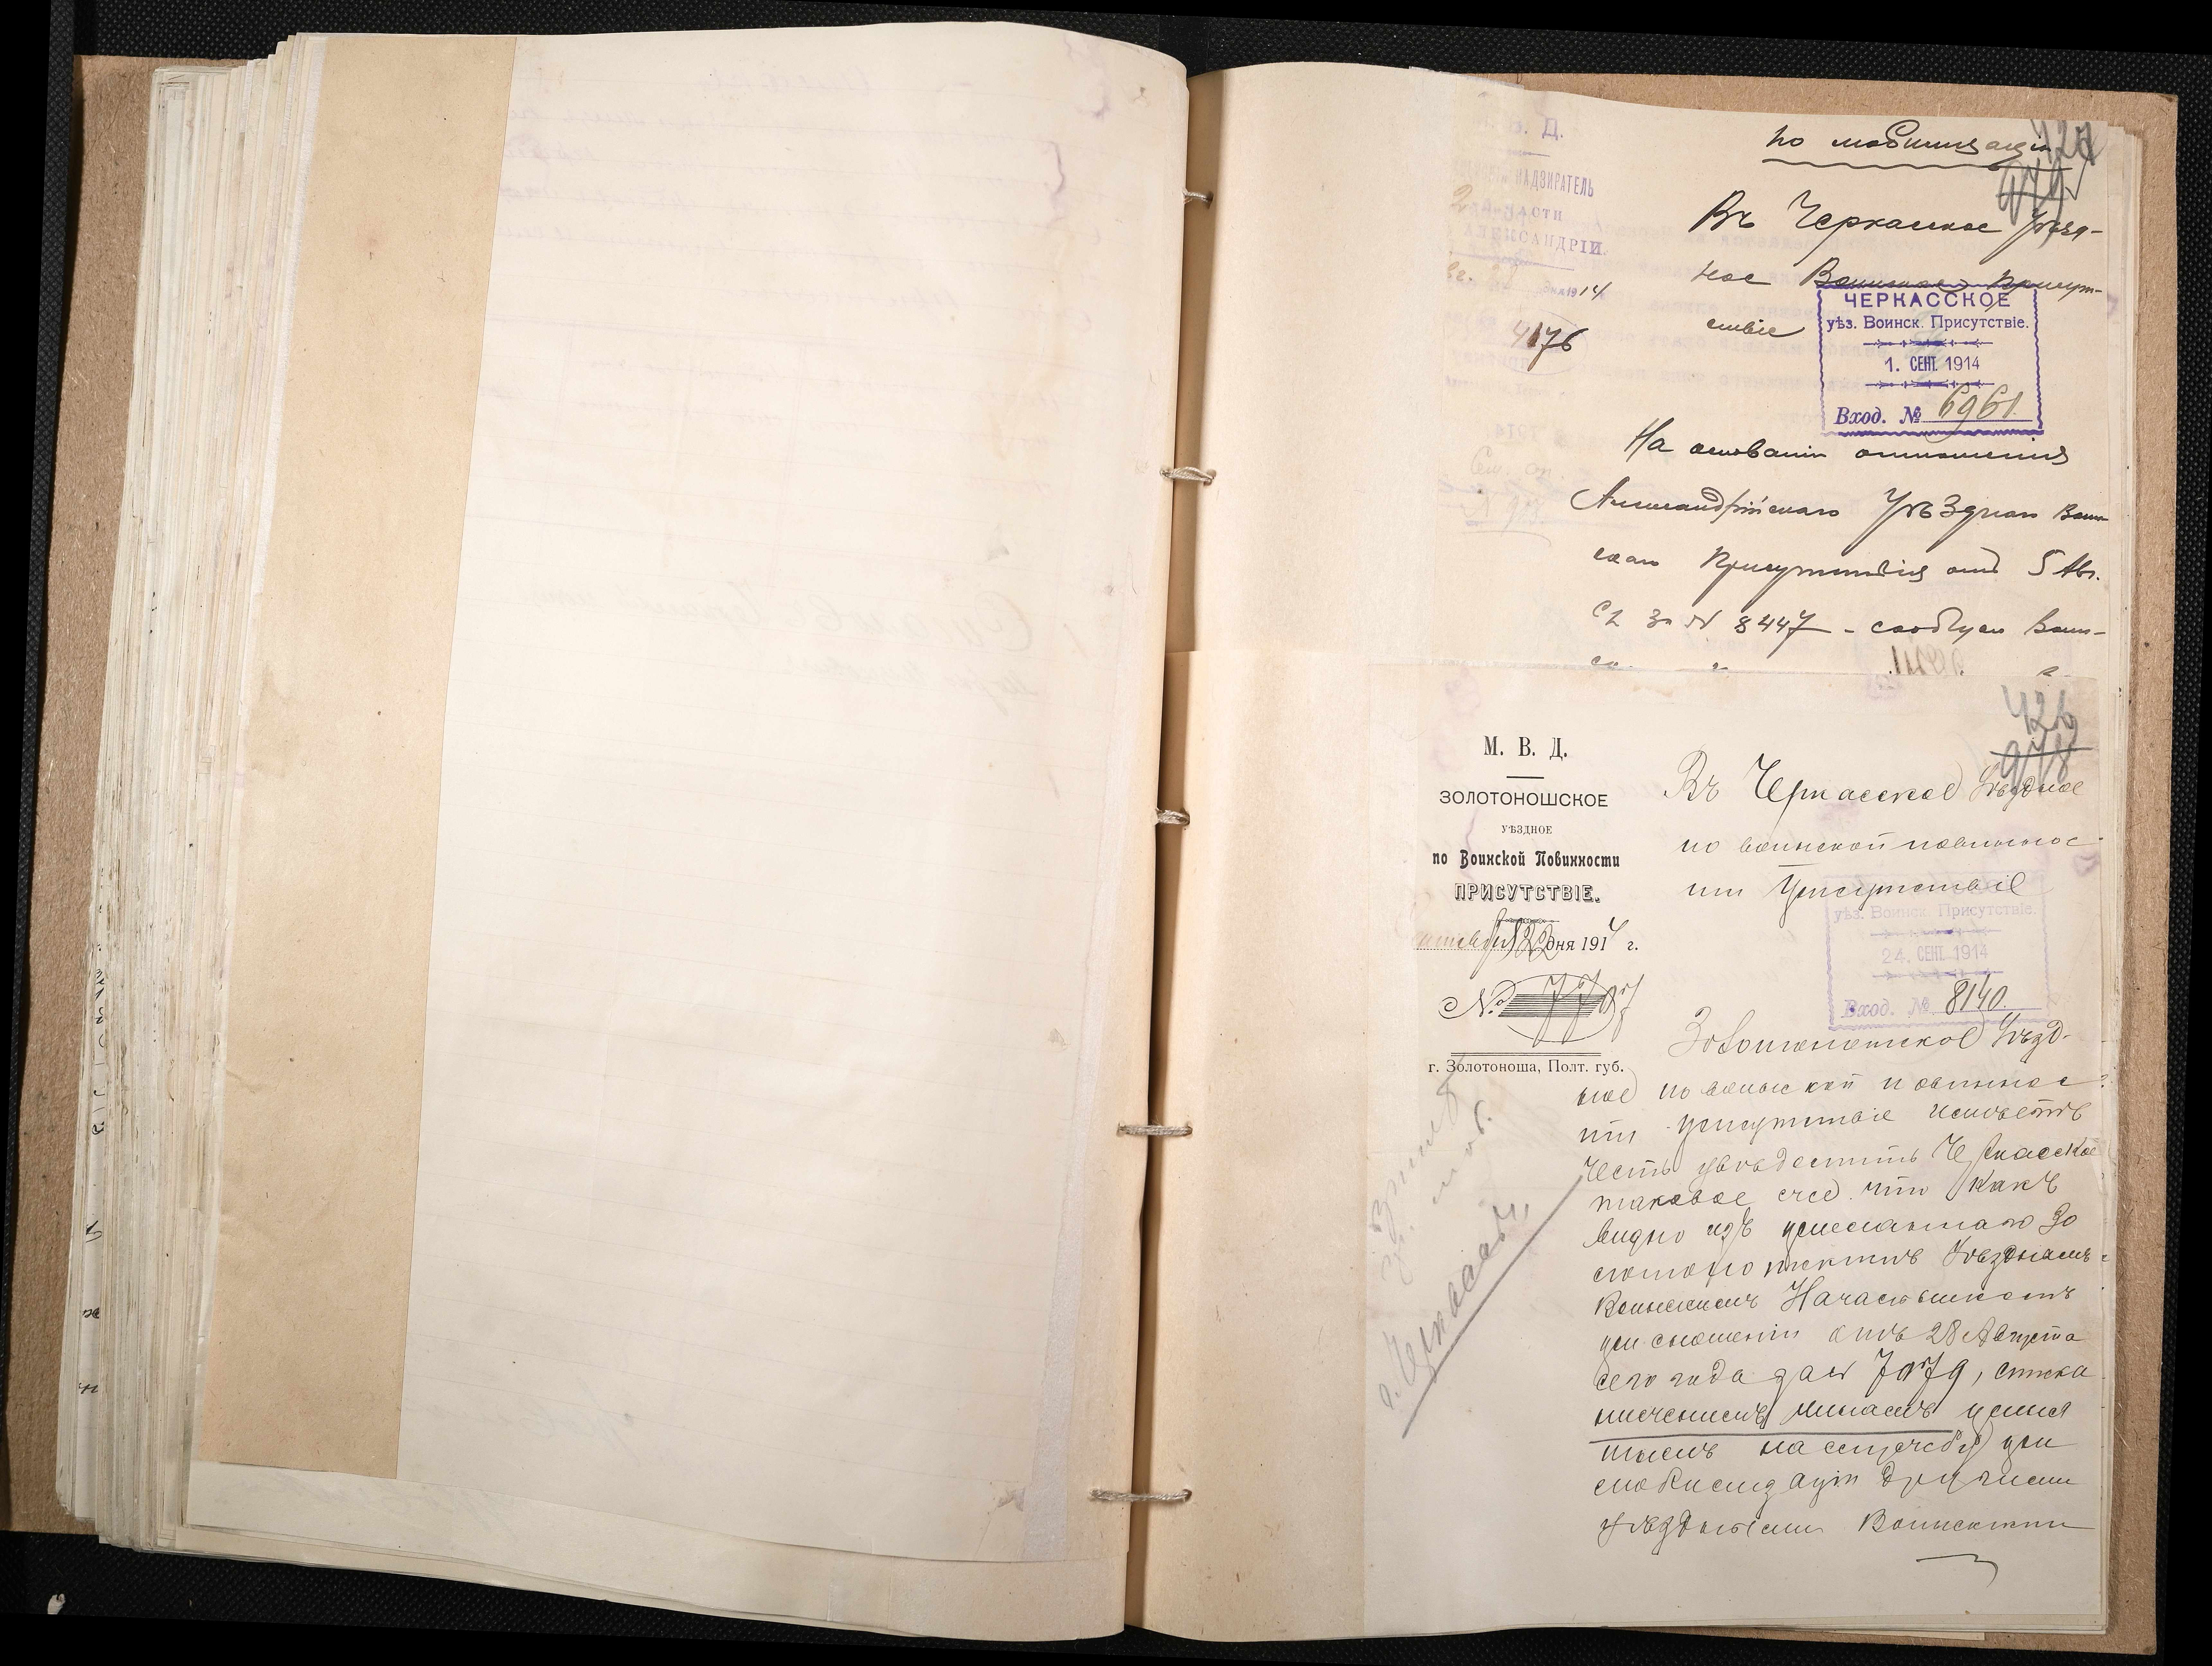 по мобилизаціи
427
979
Въ Черкасское Уѣзд-
ное Воинское Присут-
ствіе
В. Д.
НАДЗИРАТЕЛЬ
ЧАСТИ
АЛЕКСАНДРІИ.
1914
4176
ЧЕРКАССКОЕ
уѣз. Воинск. Присутствіе.
1. СЕНТ. 1914
Вход. № 6961.
На основаніи отношенія
Александрійскаго Уѣзднаго Воин-
скаго Присутствія отъ 5 Авг.
с г за № 8447 - сообщаю Воин-
426
978
М. В. Д.
ЗОЛОТОНОШСКОЕ
УѢЗДНОЕ
по Воинской Повинности
ПРИСУТСТВІЕ.
сентября 22 дня 1914 г.
№ 7787
г. Золотоноша, Полт. губ.
Въ Черкасское Уѣздное
по воинской повиннос-
ти Присутствіе
уѣз. Воинск. Присутствіе.
24. СЕНТ. 1914
Вход. № 8140.
Золотоношское Уѣзд-
ное по воинской повиннос-
ти присутствіе имѣетъ
честь увѣдомить Черкасское
таковое же, что какъ
видно изъ присланнаго Зо
лотоношскимъ Уѣзднымъ
Воинскимъ Начальникомъ
при сношеніи отъ 28 Августа
сего года за № 7079, списка
нижнимъ чинамъ приня
тымъ на службу при
мобилизаціи другими
уѣздными Воинскими
г. Черкассы,